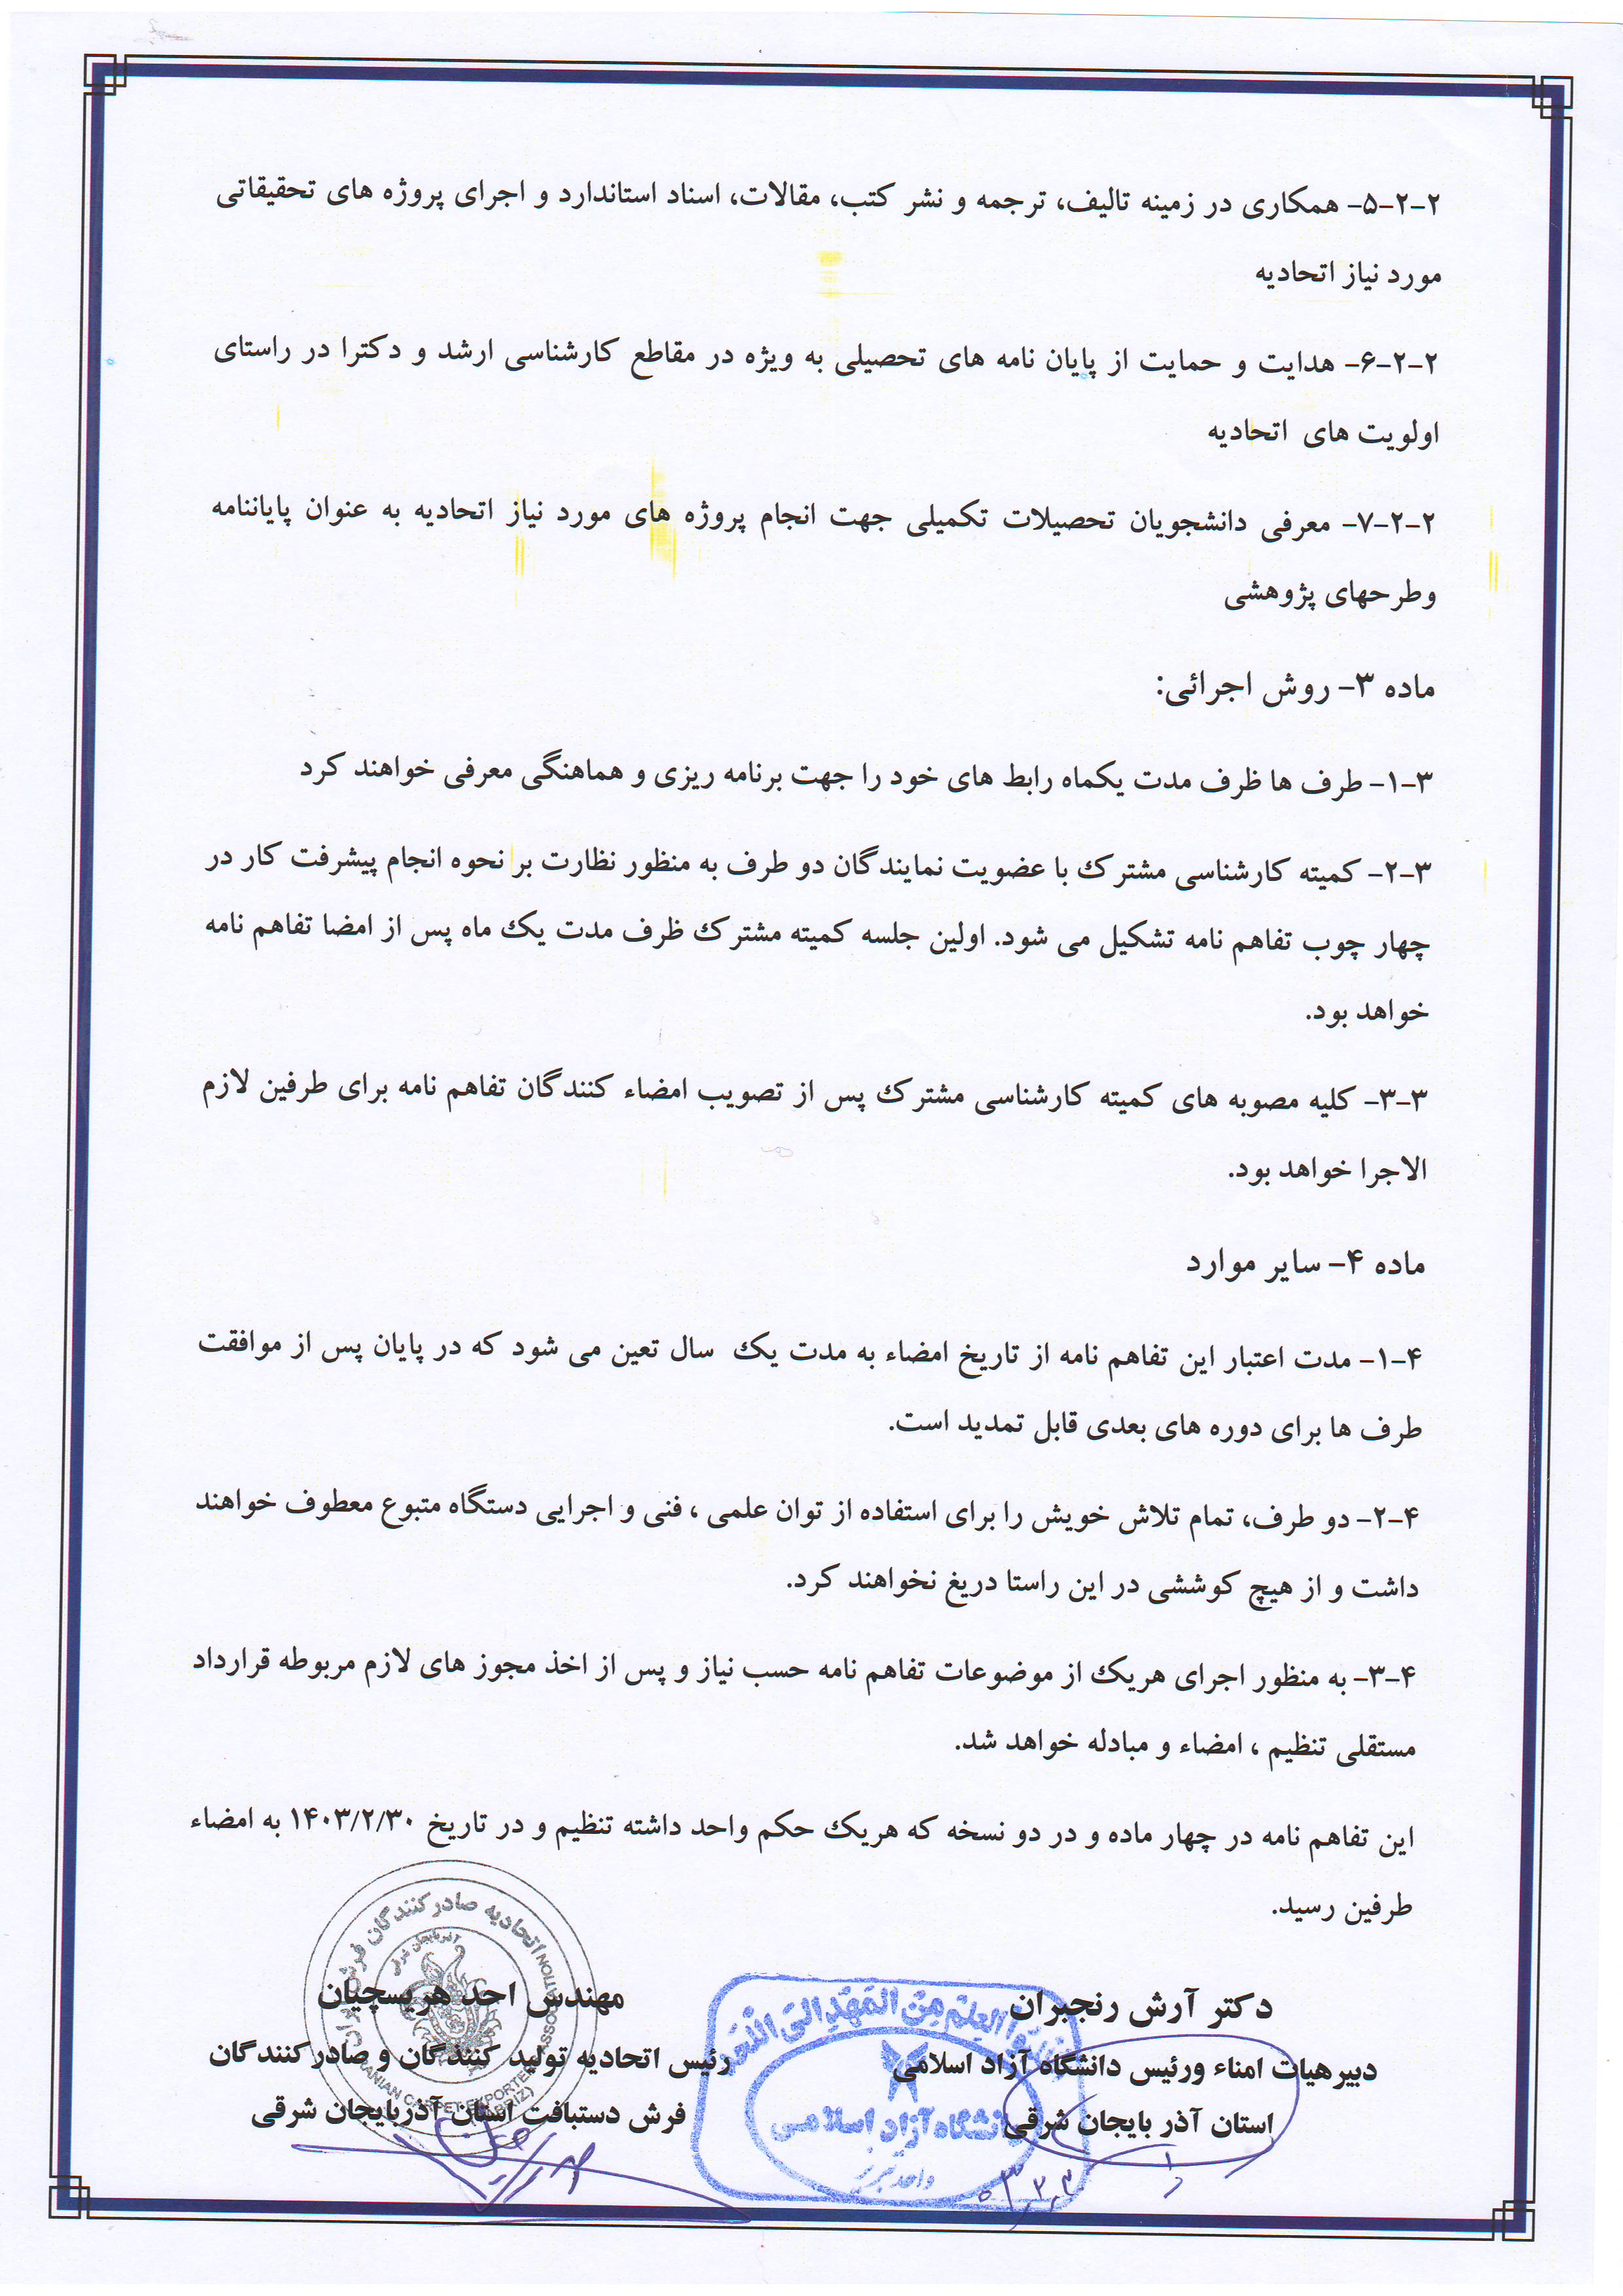 ۲-۲-۵- همکاری در زمینه تالیف، ترجمه و نشر کتب، مقالات، اسناد استاندارد و اجرای پروژه های تحقیقاتی
مورد نیاز اتحادیه
۲-۲-۶- هدایت و حمایت از پایان نامه های تحصیلی به ویژه در مقاطع کارشناسی ارشد و دکترا در راستای
اولویت های اتحادیه
۲-۲-۷- معرفی دانشجویان تحصیلات تکمیلی جهت انجام پروژه های مورد نیاز اتحادیه به عنوان پایاننامه
وطرحهای پژوهشی
ماده ۳- روش اجرائی:
۳-۱- طرف ها ظرف مدت یکماه رابط های خود را جهت برنامه ریزی و هماهنگی معرفی خواهند کرد
۳-۲- کمیته کارشناسی مشترک با عضویت نمایندگان دو طرف به منظور نظارت بر نحوه انجام پیشرفت کار در
چهار چوب تفاهم نامه تشکیل می شود. اولین جلسه کمیته مشترک ظرف مدت یک ماه پس از امضا تفاهم نامه
خواهد بود.
۳-۳- کلیه مصوبه های کمیته کارشناسی مشترک پس از تصویب امضاء کنندگان تفاهم نامه برای طرفین لازم
الاجرا خواهد بود.
ماده ۴- سایر موارد
۴-۱- مدت اعتبار این تفاهم نامه از تاریخ امضاء به مدت یک سال تعین می شود که در پایان پس از موافقت
طرف ها برای دوره های بعدی قابل تمدید است.
۴-۲- دو طرف، تمام تلاش خویش را برای استفاده از توان علمی ، فنی و اجرایی دستگاه متبوع معطوف خواهند
داشت و از هیچ کوششی در این راستا دریغ نخواهند کرد.
۴-۳- به منظور اجرای هریک از موضوعات تفاهم نامه حسب نیاز و پس از اخذ مجوز های لازم مربوطه قرارداد
مستقلی تنظیم ، امضاء و مبادله خواهد شد.
این تفاهم نامه در چهار ماده و در دو نسخه که هریک حکم واحد داشته تنظیم و در تاریخ ۱۴۰۳/۲/۳۰ به امضاء
طرفین رسید.
دکتر آرش رنجبران
دبیرهیات امناء ورئیس دانشگاه آزاد اسلامی
استان آذر بایجان شرقی
مهندس احد هریسچیان
رئیس اتحادیه تولید کنندگان و صادر کنندگان
فرش دستبافت استان آذربایجان شرقی
العلم من المهد الی
دانشگاه آزاد اسلامی
واحد تبریز
اتحادیه صادر کنندگان فرش
آذربایجان شرقی